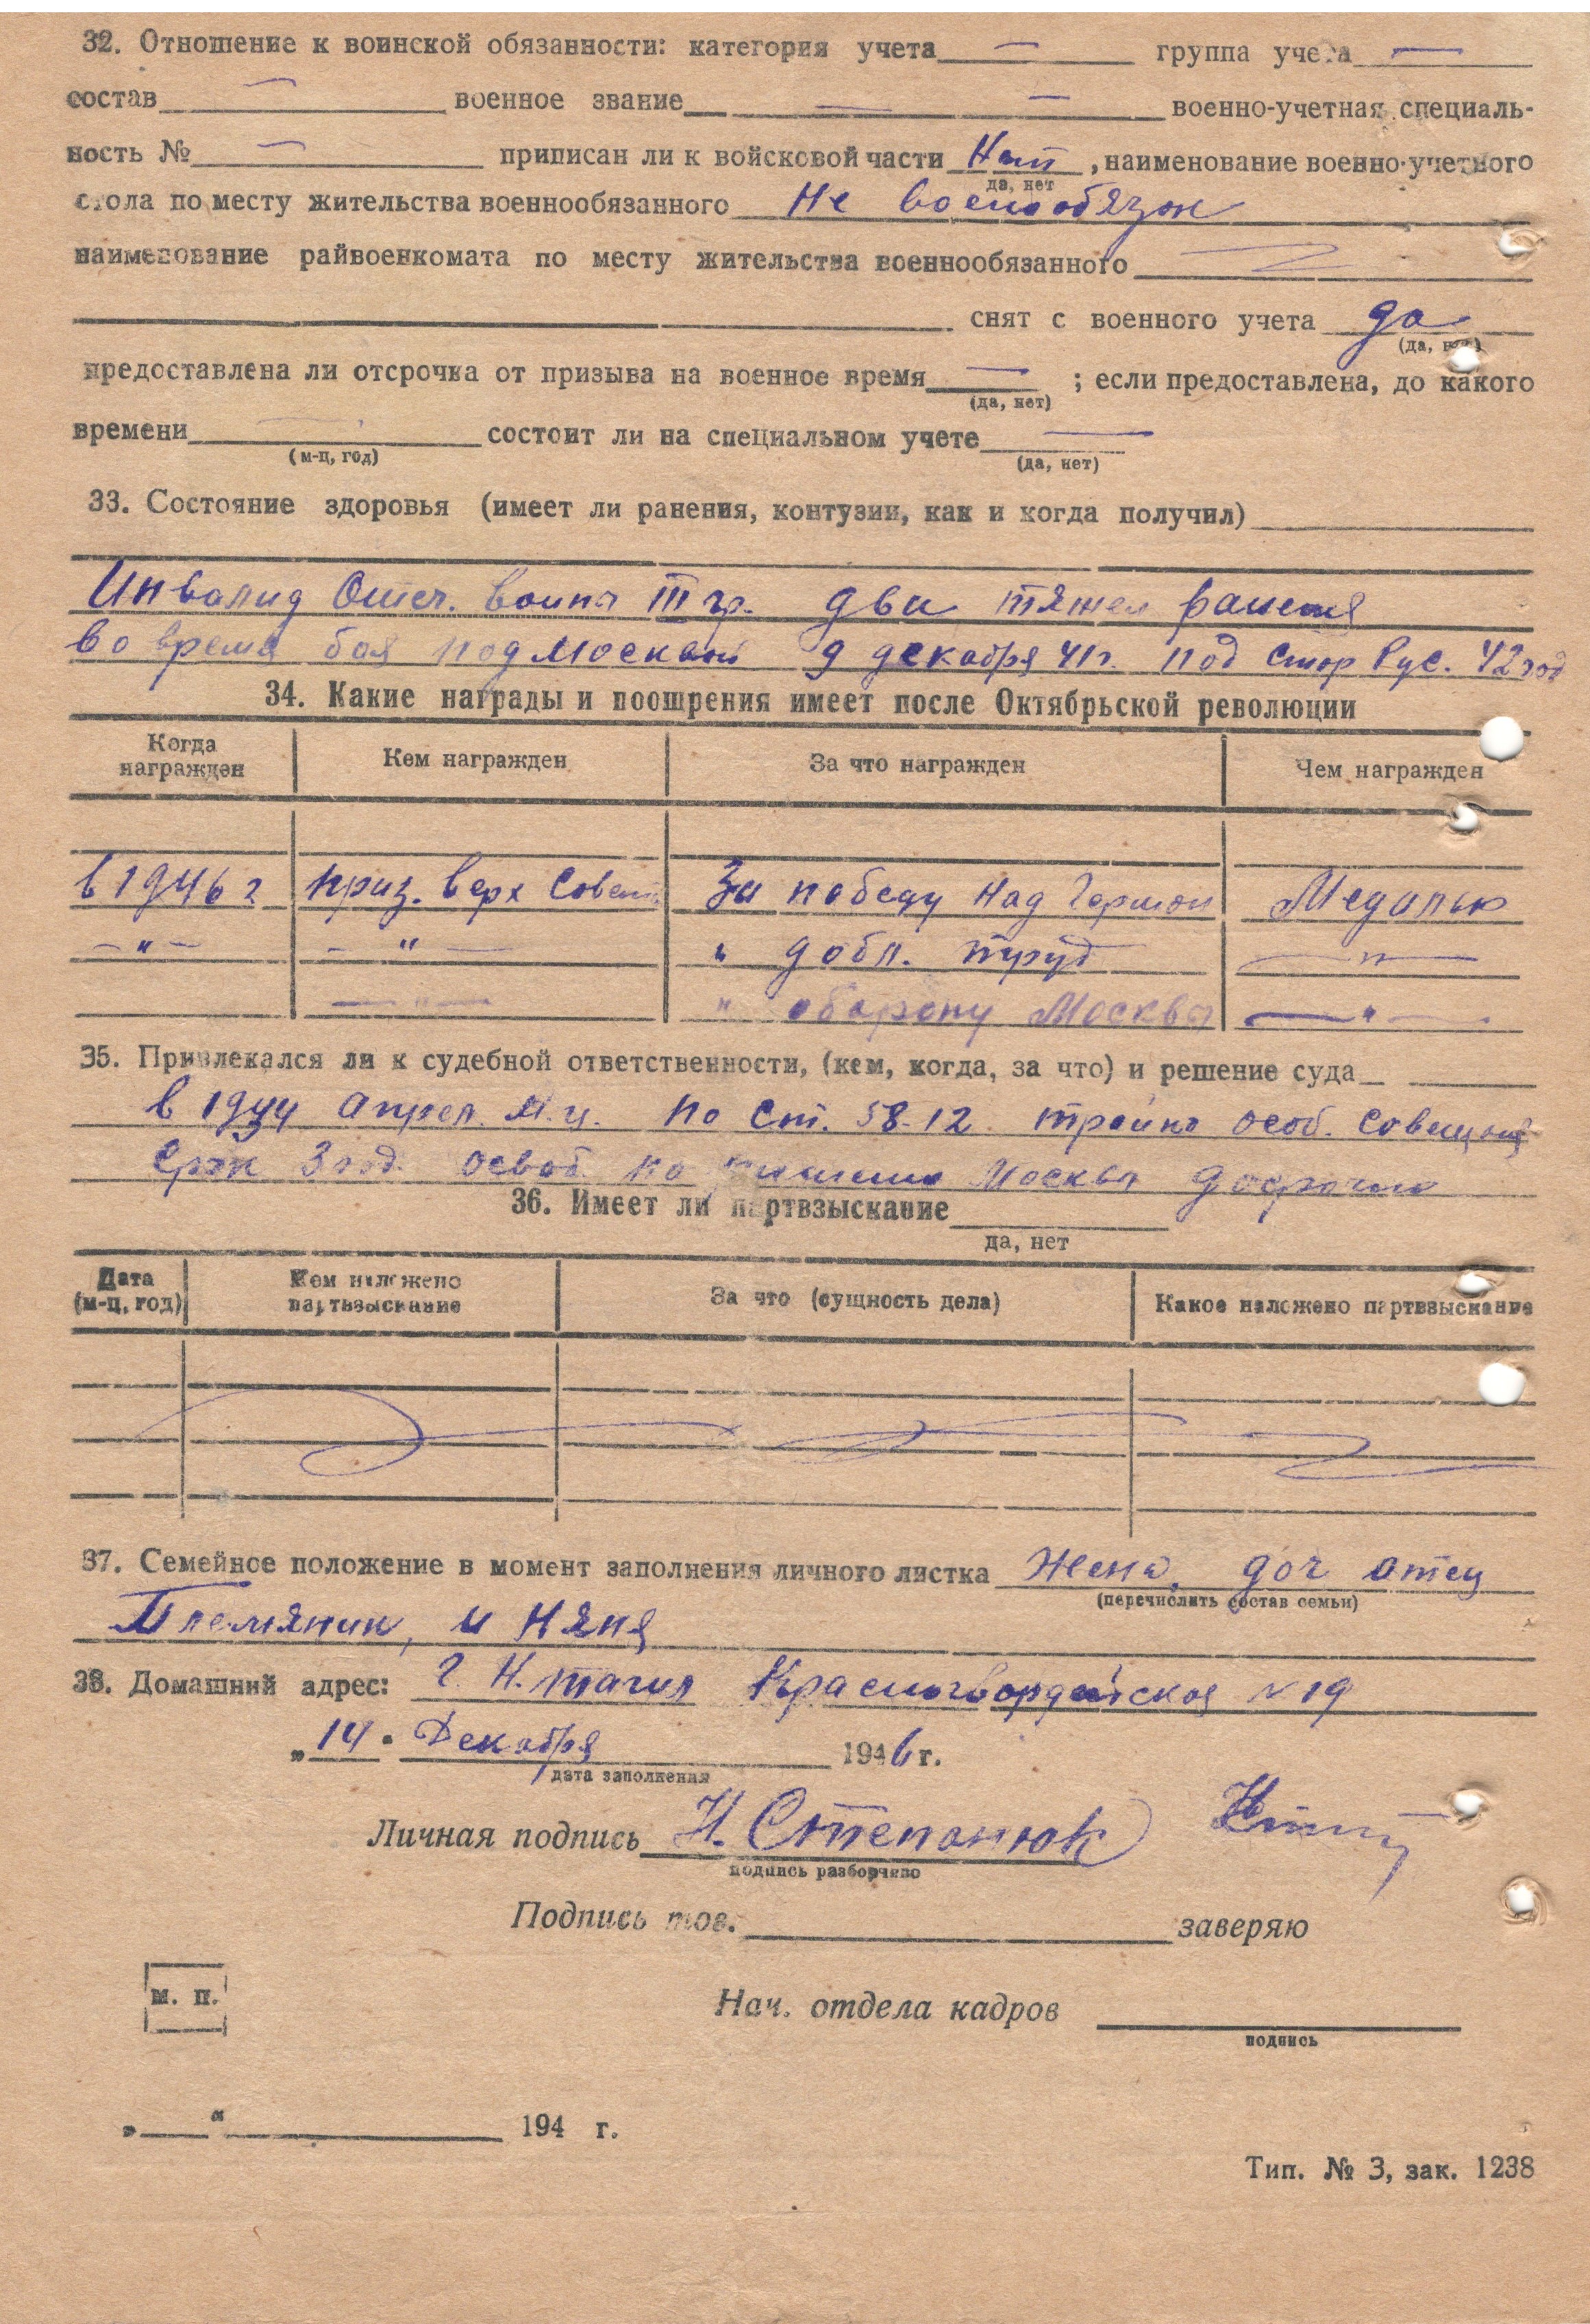 32. Отношение к воинской обязанности: категория учета — группа учета —
состав — военное звание — — военно-учетная специаль-
ность № — приписан ли к войсковой части Нет, наименование военно-учетного
да, нет
стола по месту жительства военнообязанного Не военообязан
наименование райвоенкомата по месту жительства военнообязанного
снят с военного учета да
(да, нет)
предоставлена ли отсрочка от призыва на военное время — ; если предоставлена, до какого
(да, нет)
времени — состоит ли на специальном учете —
(м-ц, год) (да, нет)
33. Состояние здоровья (имеет ли ранения, контузии, как и когда получил)
Инвалид Отеч. воины III гр. два тяжел ранения
во время боя под Москвой 9 декабря 41г. под Стар Рус. 42 год
34. Какие награды и поощрения имеет после Октябрьской революции
Когда награжден Кем награжден За что награжден Чем награжден
в 1946 г През. Верх Совет. За победу над Герман Медалью
— " — — " — " добл. труд — " —
— " — " оборону Москвы — " —
35. Привлекался ли к судебной ответственности, (кем, когда, за что) и решение суда
в 1944 Апрел. м.ц. по Ст. 58-12 тройка особ. совещания
Срок 3 год. освоб. по Москвы досрочно
36. Имеет ли партвзыскание
да, нет
Дата (м-ц, год) Кем наложено партвзыскание За что (сущность дела) Какое наложено партвзыскание
37. Семейное положение в момент заполнения личного листка Жена, доч отец
(перечислить состав семьи)
Племяник, и няня
38. Домашний адрес: г. Н. Тагил Красногвардейская N 19
„14" Декабря 1946 г.
дата заполнения
Личная подпись Н. Степанюк
подпись разборчиво
Подпись тов. заверяю
м. п.
Нач. отдела кадров
подпись
„ " 194 г.
Тип. № 3, зак. 1238